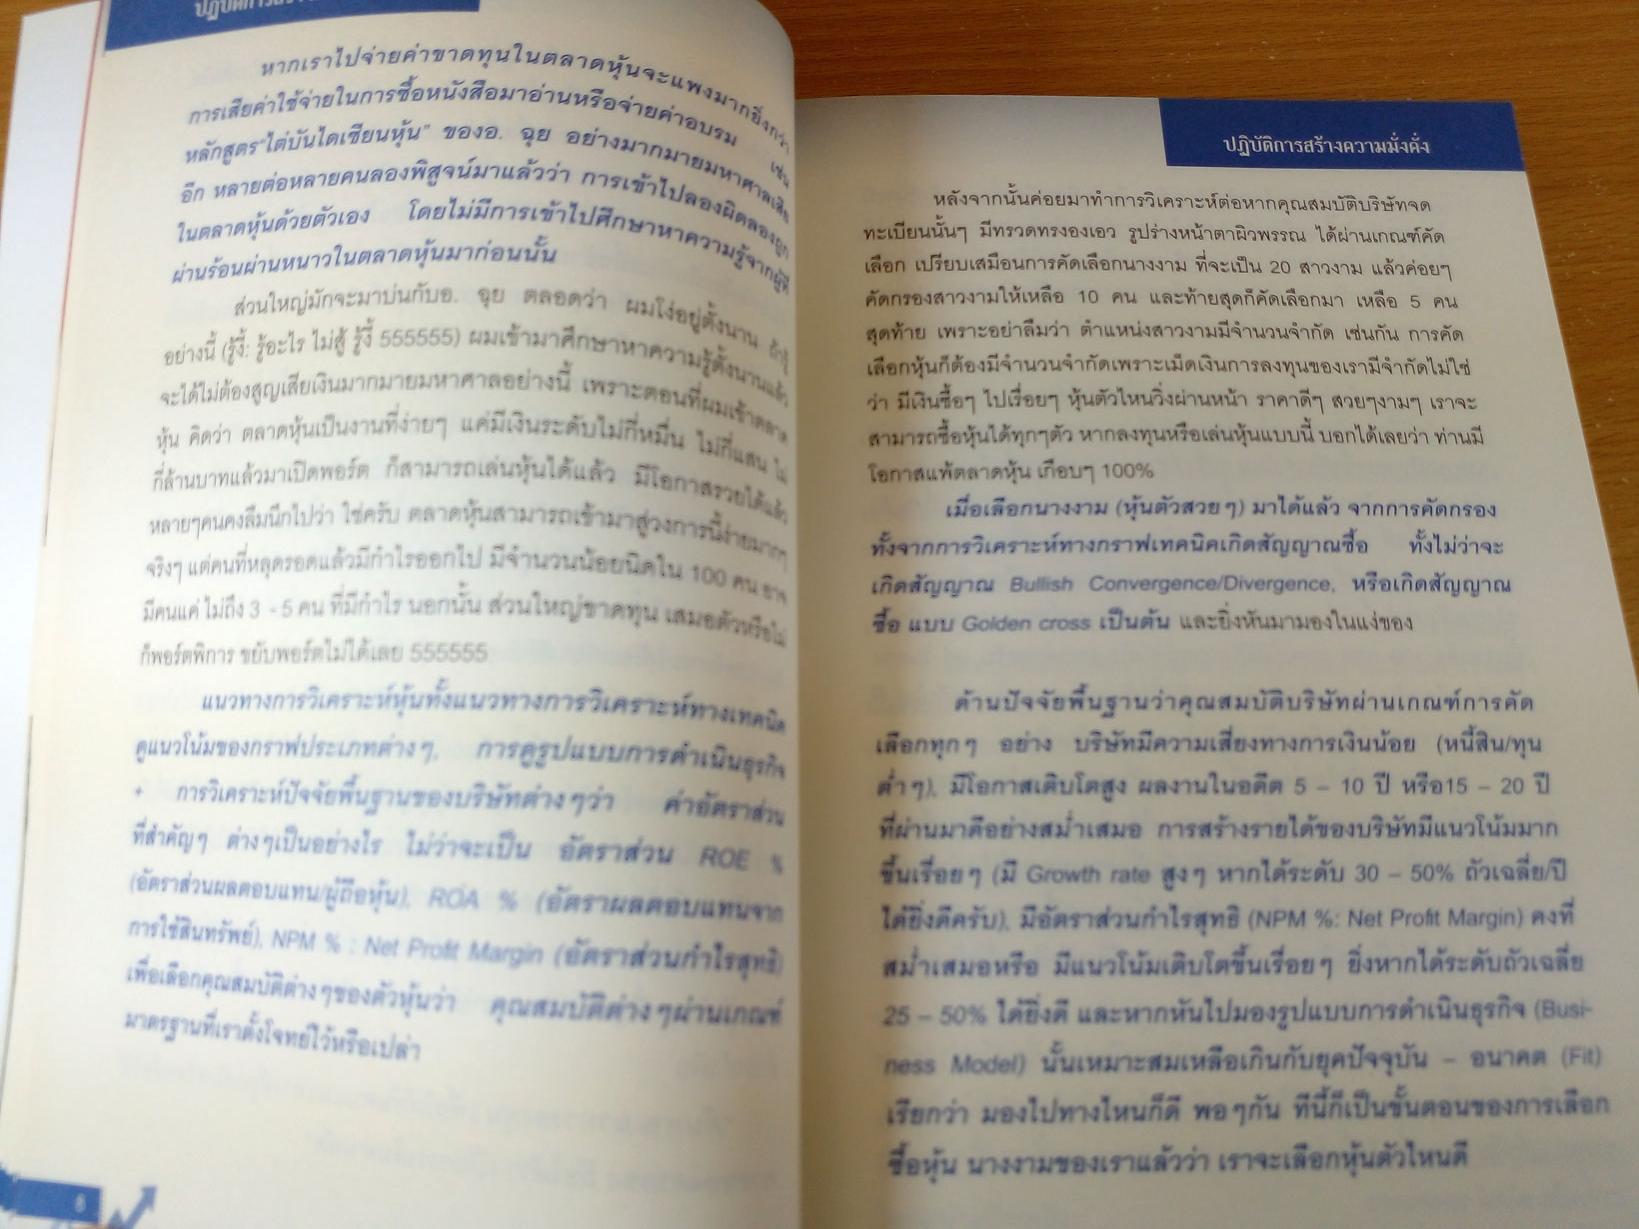 ปฏิบัติการสร้าง
หากเราไปจ่ายค่าขาดทุนในตลาดหุ้นจะแพงมากยิ่งกว่า
การเสียค่าใช้จ่ายในการซื้อหนังสือมาอ่านหรือจ่ายค่าอบรม เช่น
หลักสูตร"ไต่บันไดเซียนหุ้น" ของอ. ฉุย อย่างมากมายมหาศาลเสีย
อีก หลายต่อหลายคนลองพิสูจน์มาแล้วว่า การเข้าไปลองผิดลองถูก
ในตลาดหุ้นด้วยตัวเอง โดยไม่มีการเข้าไปศึกษาหาความรู้จากผู้ที่
ผ่านร้อนผ่านหนาวในตลาดหุ้นมาก่อนนั้น
ส่วนใหญ่มักจะมาบ่นกับอ. ฉุย ตลอดว่า ผมโง่อยู่ตั้งนาน ถ้ารู้
อย่างนี้ (รู้งี้: รู้อะไร ไม่สู้ รู้งี้ 555555) ผมเข้ามาศึกษาหาความรู้ตั้งนานแล้ว
จะได้ไม่ต้องสูญเสียเงินมากมายมหาศาลอย่างนี้ เพราะตอนที่ผมเข้าตลาด
หุ้น คิดว่า ตลาดหุ้นเป็นงานที่ง่ายๆ แค่มีเงินระดับไม่กี่หมื่น ไม่กี่แสน ไม่
กี่ล้านบาทแล้วมาเปิดพอร์ต ก็สามารถเล่นหุ้นได้แล้ว มีโอกาสรวยได้แล้ว
หลายๆคนคงลืมนึกไปว่า ใช่ครับ ตลาดหุ้นสามารถเข้ามาสู่วงการนี้ง่ายมากๆ
จริงๆ แต่คนที่หลุดรอดแล้วมีกำไรออกไป มีจำนวนน้อยนิดใน 100 คน อาจ
มีคนแค่ ไม่ถึง 3 - 5 คน ที่มีกำไร นอกนั้น ส่วนใหญ่ขาดทุน เสมอตัวหรือไม่
ก็พอร์ตพิการ ขยับพอร์ตไม่ได้เลย 555555
แนวทางการวิเคราะห์หุ้นทั้งแนวทางการวิเคราะห์ทางเทคนิค
ดูแนวโน้มของกราฟประเภทต่างๆ, การดูรูปแบบการดำเนินธุรกิจ
+ การวิเคราะห์ปัจจัยพื้นฐานของบริษัทต่างๆว่า ค่าอัตราส่วน
ที่สำคัญๆ ต่างๆเป็นอย่างไร ไม่ว่าจะเป็น อัตราส่วน ROE %
(อัตราส่วนผลตอบแทน/ผู้ถือหุ้น), ROA % (อัตราผลตอบแทนจาก
การใช้สินทรัพย์), NPM % : Net Profit Margin (อัตราส่วนกำไรสุทธิ)
เพื่อเลือกคุณสมบัติต่างๆของตัวหุ้นว่า คุณสมบัติต่างๆผ่านเกณฑ์
มาตรฐานที่เราตั้งโจทย์ไว้หรือเปล่า
ปฏิบัติการสร้างความมั่งคั่ง
หลังจากนั้นค่อยมาทำการวิเคราะห์ต่อหากคุณสมบัติบริษัทจด
ทะเบียนนั้นๆ มีทรวดทรงองเอว รูปร่างหน้าตาผิวพรรณ ได้ผ่านเกณฑ์คัด
เลือก เปรียบเสมือนการคัดเลือกนางงาม ที่จะเป็น 20 สาวงาม แล้วค่อยๆ
คัดกรองสาวงามให้เหลือ 10 คน และท้ายสุดก็คัดเลือกมา เหลือ 5 คน
สุดท้าย เพราะอย่าลืมว่า ตำแหน่งสาวงามมีจำนวนจำกัด เช่นกัน การคัด
เลือกหุ้นก็ต้องมีจำนวนจำกัดเพราะเม็ดเงินการลงทุนของเรามีจำกัดไม่ใช่
ว่า มีเงินซื้อๆ ไปเรื่อยๆ หุ้นตัวไหนวิ่งผ่านหน้า ราคาดีๆ สวยๆงามๆ เราจะ
สามารถซื้อหุ้นได้ทุกๆตัว หากลงทุนหรือเล่นหุ้นแบบนี้ บอกได้เลยว่า ท่านมี
โอกาสแพ้ตลาดหุ้น เกือบๆ 100%
เมื่อเลือกนางงาม (หุ้นตัวสวยๆ) มาได้แล้ว จากการคัดกรอง
ทั้งจากการวิเคราะห์ทางกราฟเทคนิคเกิดสัญญาณซื้อ ทั้งไม่ว่าจะ
เกิดสัญญาณ Bullish Convergence/Divergence, หรือเกิดสัญญาณ
ซื้อ แบบ Golden cross เป็นต้น และยิ่งหันมามองในแง่ของ
ด้านปัจจัยพื้นฐานว่าคุณสมบัติบริษัทผ่านเกณฑ์การคัด
เลือกทุกๆ อย่าง บริษัทมีความเสี่ยงทางการเงินน้อย (หนี้สิน/ทุน
ต่ำๆ), มีโอกาสเติบโตสูง ผลงานในอดีต 5 – 10 ปี หรือ15 – 20 ปี
ที่ผ่านมาดีอย่างสม่ำเสมอ การสร้างรายได้ของบริษัทมีแนวโน้มมาก
ขึ้นเรื่อยๆ (มี Growth rate สูงๆ หากได้ระดับ 30 – 50% ถัวเฉลี่ย/ปี
ได้ยิ่งดีครับ), มีอัตราส่วนกำไรสุทธิ (NPM %: Net Profit Margin) คงที่
สม่ำเสมอหรือ มีแนวโน้มเติบโตขึ้นเรื่อยๆ ยิ่งหากได้ระดับถัวเฉลี่ย
25 – 50% ได้ยิ่งดี และหากหันไปมองรูปแบบการดำเนินธุรกิจ (Busi-
ness Model) นั้นเหมาะสมเหลือเกินกับยุคปัจจุบัน – อนาคต (Fit)
เรียกว่า มองไปทางไหนก็ดี พอๆกัน ทีนี้ก็เป็นขั้นตอนของการเลือก
ซื้อหุ้น นางงามของเราแล้วว่า เราจะเลือกหุ้นตัวไหนดี